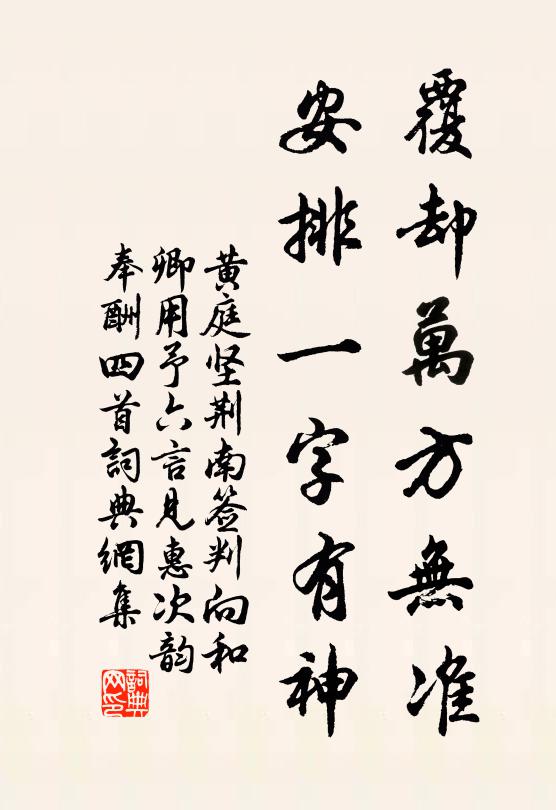 覆却萬方無准
安排一字有神
黃庭坚荆南簽判向和
卿用予六言見惠次韵
奉酬四首詞典網集
詞典
网印